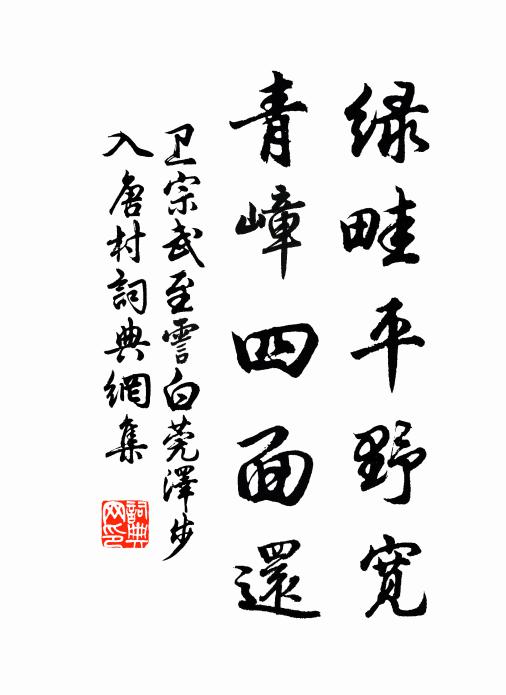 绿畦平野寛
青嶂四面還
卫宗武至霅白莞澤步
入唐村詞典網集
詞典网印